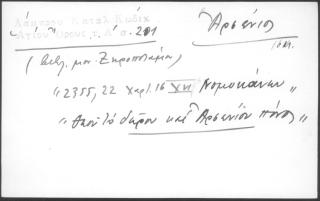 Λάμπρου Κατάλ. Κωδίκ.
Ἁγίου Ὄρους τ. Α´ σ. 201
Ἀρσένιος
(βιβλ. μον. Ξηροποτάμου)
"2355, 22 Χαρτ. 16 XVI Νομοκάνων"
"Ἀπὸ τὸ δῶρον καὶ Ἀρσενίου πόνος"